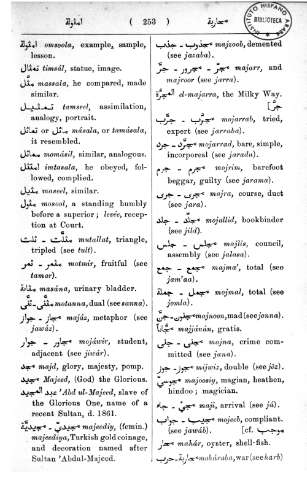 امثولة ( 253 ) محاربة
INSTITUTO HISPANO
BIBLIOTECA
امثولة omsoola, example, sample,
lesson.
تمثال timsâl, statue, image.
مثّل massala, he compared, made
similar.
تمثيل tamseel, assimilation,
analogy, portrait.
ماثل or تماثل mâsala, or tamâsala,
it resembled.
مماثل momâsil, similar, analogous.
امتثل imtasala, he obeyed, fol-
lowed, complied.
مثيل maseel, similar.
مثول mosool, a standing humbly
before a superior; levée, recep-
tion at Court.
مثلّث - ثلث motallat, triangle,
tripled (see tult).
مثمر - ثمر motmir, fruitful (see
tamar).
مثانة masâna, urinary bladder.
مثنّى - ثنّى motanna, dual (see sanna).
مجاز - جواز majâz, metaphor (see
jawâz).
مجاور - جوار mojâwir, student,
adjacent (see jiwâr).
مجد majd, glory, majesty, pomp.
مجيد Majeed, (God) the Glorious.
عبد المجيد 'Abd ul-Majeed, slave of
the Glorious One, name of a
recent Sultan, d. 1861.
مجيدي - مجيديّة majeedy, (femin.)
majeediya, Turkish gold coinage,
and decoration named after
Sultan 'Abdal-Majeed.
مجذوب - جذب majzoob, demented
(see jazaba).
مجرّ - مجرور - جرّ majarr, and
majroor (see jarra).
المجرّة el-majarra, the Milky Way.
[جرّ
مجرّب - جرّب mojarrab, tried,
expert (see jarraba).
مجرّد - جرد mojarrad, bare, simple,
incorporeal (see jarada).
مجرم - جرم mojrim, barefoot
beggar, guilty (see jarama).
مجرى - جرى majra, course, duct
(see jara).
مجلّد - جلد mojallid, bookbinder
(see jild).
مجلس - جلس majlis, council,
assembly (see jalasa).
مجمع - جمع majma', total (see
jam'aa).
مجمل - جملة mojmal, total (see
jomla).
مجنون - جنّ majnoon, mad (see jonna).
مجّاناً majjânân, gratis.
مجنى - جنى majna, crime com-
mitted (see jana).
مجوز - جوز mijwiz, double (see jôz).
مجوسيّ majoosiy, magian, heathen,
hindoo; magician.
مجيء - جاء majî, arrival (see jâ).
مجيب - جواب mojeeb, compliant.
(see jawâb). [مجب .cf
محار mahâr, oyster, shell-fish.
محاربة - حرب mahâraba, war (see harb)